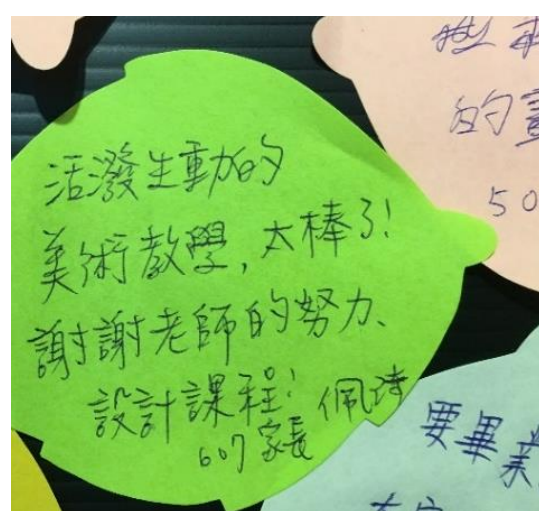 活潑生動的
美術教學，太棒了！
謝謝老師的努力、
設計課程！佩琦
607家長
的畫
50
要畢業